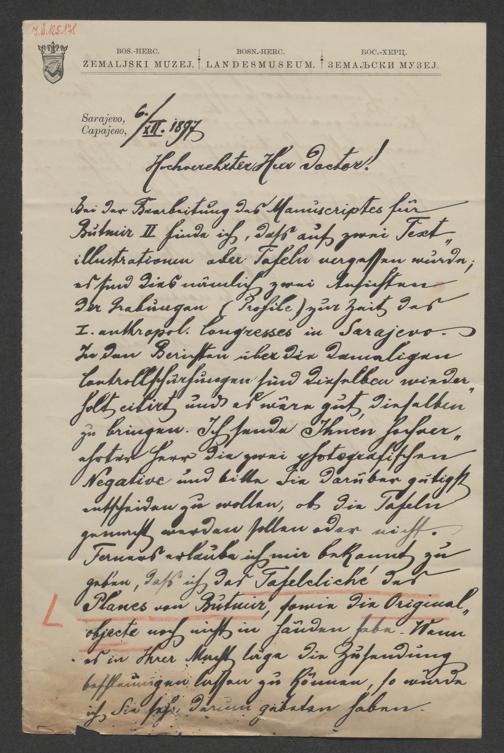 BOS.-HERC. BOSN.-HERC. БОС.-ХЕРЦ.
ZEMALJSKI MUZEJ. LANDESMUSEUM. ЗЕМАЉСКИ МУЗЕЈ.
Sarajevo, 6./XII. 1897
Сарајево,
Hochverehrter Herr Doctor!
Bei der Bearbeitung des Manuscriptes für
Butmir II finde ich, daß auf zwei Text„
illustrationen oder Tafeln vergessen wurde;
es sind dies nämlich zwei Ansichten
der Grabungen (Profile) zur Zeit des
I. anthropol. Congresses in Sarajevo.
In den Berichten über die damaligen
Controllschürfungen sind dieselben wieder„
holt citirt und es wäre gut, dieselben
zu bringen. Ich sende Ihnen hochver„
ehrter Herr die zwei photografischen
Negative und bitte Sie darüber gütigst
entscheiden zu wollen, ob die Tafeln
gemacht werden sollen oder nicht.
Ferners erlaube ich mir bekannt zu
geben, daß ich das Tafelcliché des
Planes von Butmir, sowie die Original„
objecte noch nicht in Händen habe. Wenn
es in Ihrer Macht läge die Zusendung
beschleunigen lassen zu können, so würde
ich Sie sehr darum gebeten haben.